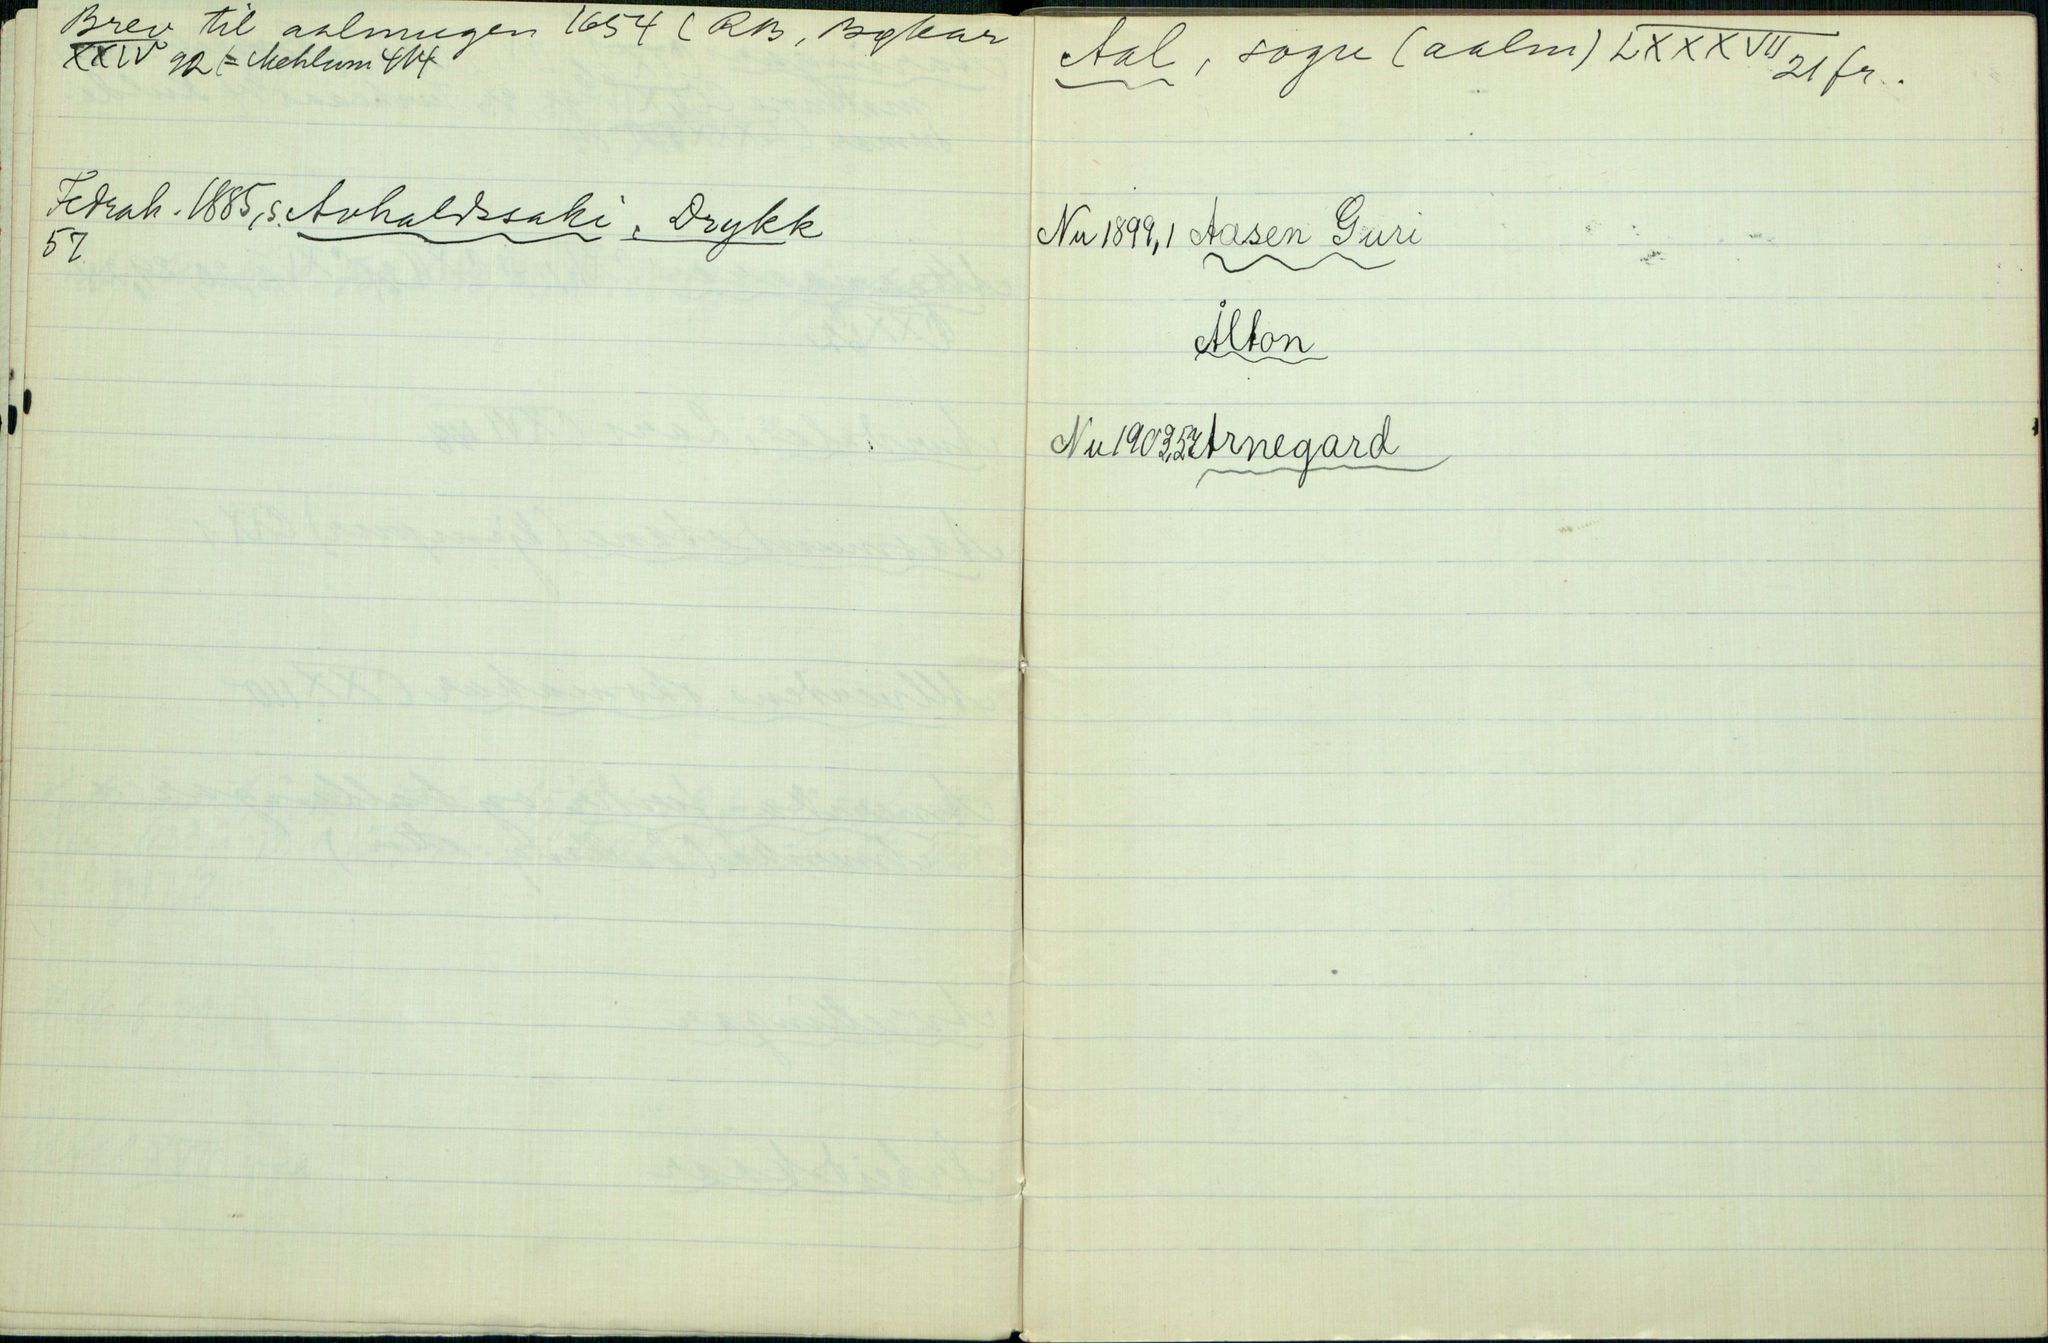 Brev til aalmugen 1654 (RB, Bykar
XXIV 92 (= Mehlum 414
Fedrah. 1885, s. Avhaldssaki, Drykk
57
Aal, sogu (aalm) LXXXVII 21 fr.
Nu 1899,1 Aasen Guri
Ålton
Nu 1902,52 Arnegard